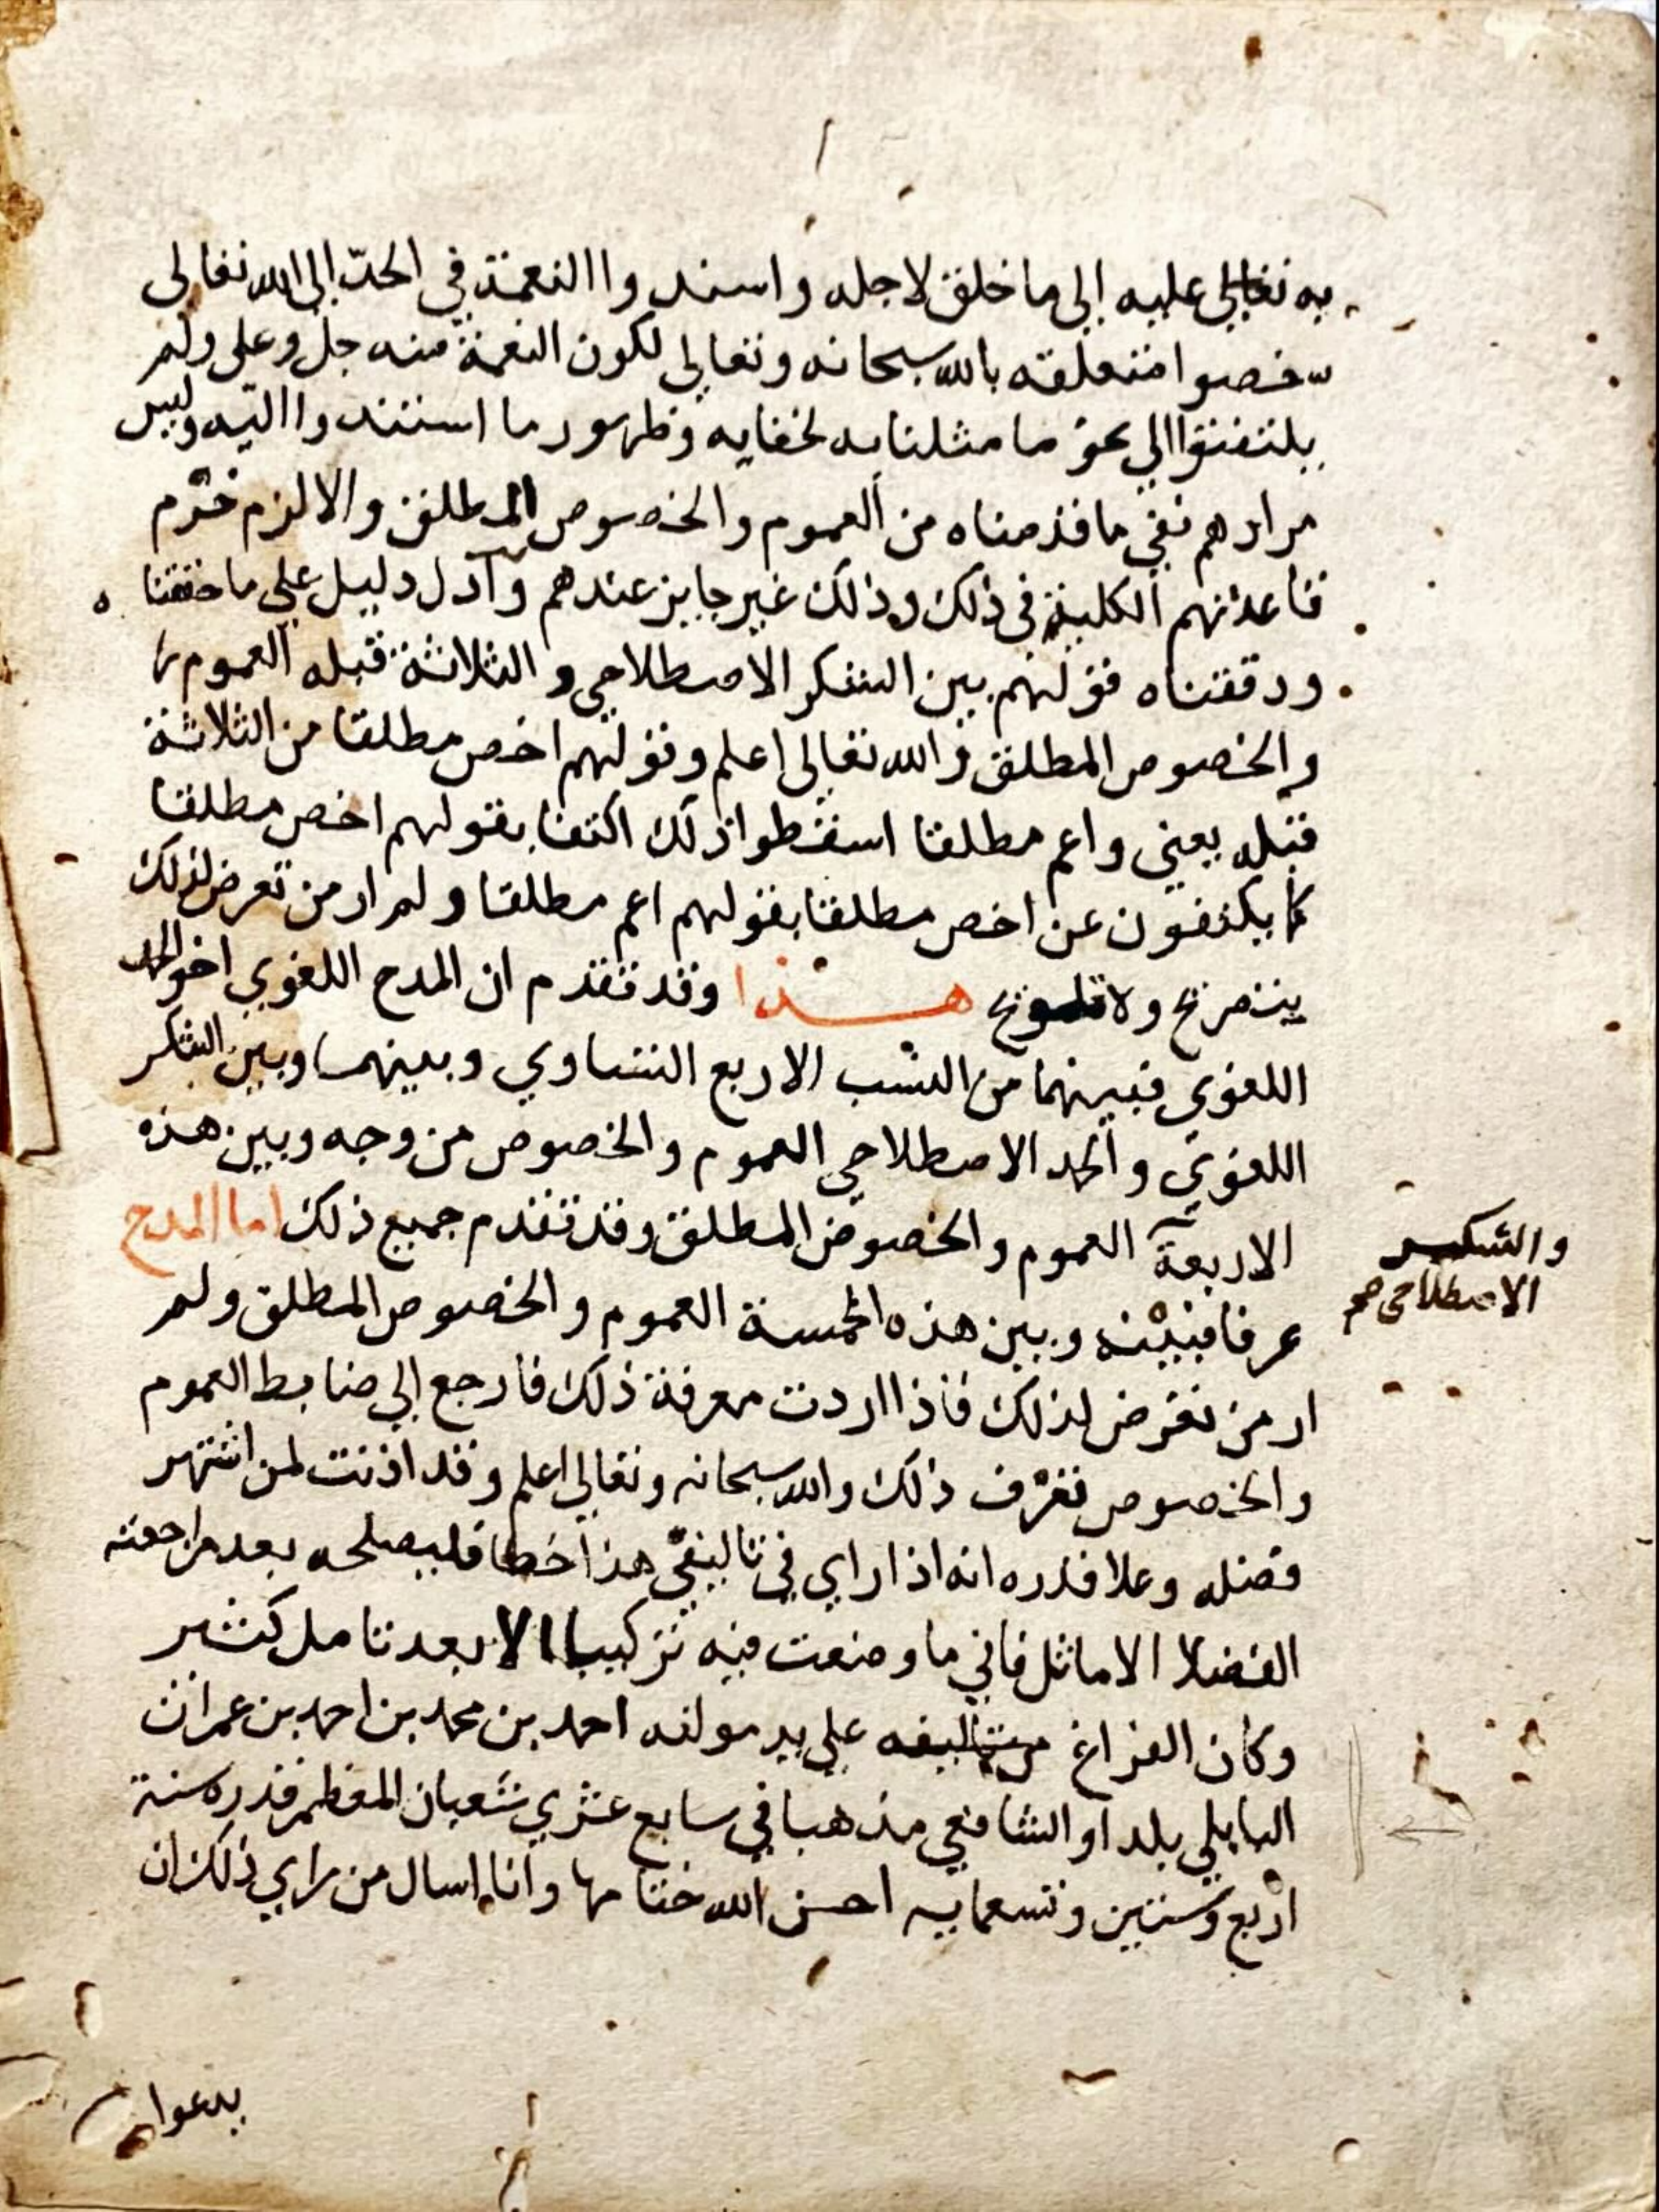 به تعالى عليه إلى ما خلق لاجله واسندوا النعمة في الحد إلى الله تعالى
خصوا متعلقه بالله سبحانه وتعالى لكون النعمة منه جل وعلى ولم
يلتفتوا الي نحو ما مثلنا به لخفايه وظهور ما استندوا اليه وليس
مرادهم نفي ما قدمناه من العموم والخصوص المطلق والا لزم خرم
قاعدتهم الكلية في ذلك وذلك غير جايز عندهم وآدل دليل علي ما حققنا ه
ودققناه قولهم بين الشكر الاصطلاحي و الثلاثة قبله العموم
والخصوص المطلق والله تعالى اعلم وقولهم اخص مطلقا من الثلاثة
قبله يعني واعم مطلقا اسقطوا ذلك اكتفا بقولهم اخص مطلقا
كما يكتفون عن اخص مطلقا بقولهم اعم مطلقا ولم ار من تعرض لذلك
بتصريح ولا تلويح هذا وقد تقدم ان المدح اللغوي اخو الحمد
اللغوي فبينهما من النسب الاربع التساوي وبينهما وبين الشكر
اللغوي والحمد الاصطلاحي العموم والخصوص من وجه وبين هذه
الاربعة العموم والخصوص المطلق وقد تقدم جميع ذلك اما المدح
والشكر
الاصطلاحي صح
عرفا فبينه وبين هذه الخمسة العموم والخصوص المطلق ولم
ار من تعرض لذلك فاذا اردت معرفة ذلك فارجع إلي ضابط العموم
والخصوص تعرف ذلك والله سبحانه وتعالي اعلم وقد اذنت لمن اشتهر
فضله وعلا قدره انه اذا راي في تاليفي هذا خطا فليصلحه بعد مراجعته
الفضلا الاماثل فاني ما وضعت فيه تركيبا الا بعد تامل كثير
وكان الفراغ من تاليفه علي يد مولفه احمد بن محمد بن احمد بن عمران
البابلي بلدا و الشافعي مذهبا في سابع عشري شعبان المعظم قدره سنة
اربع وستين وتسعمايه احسن الله ختامها وانا اسال من راي ذلك ان
يدعوا